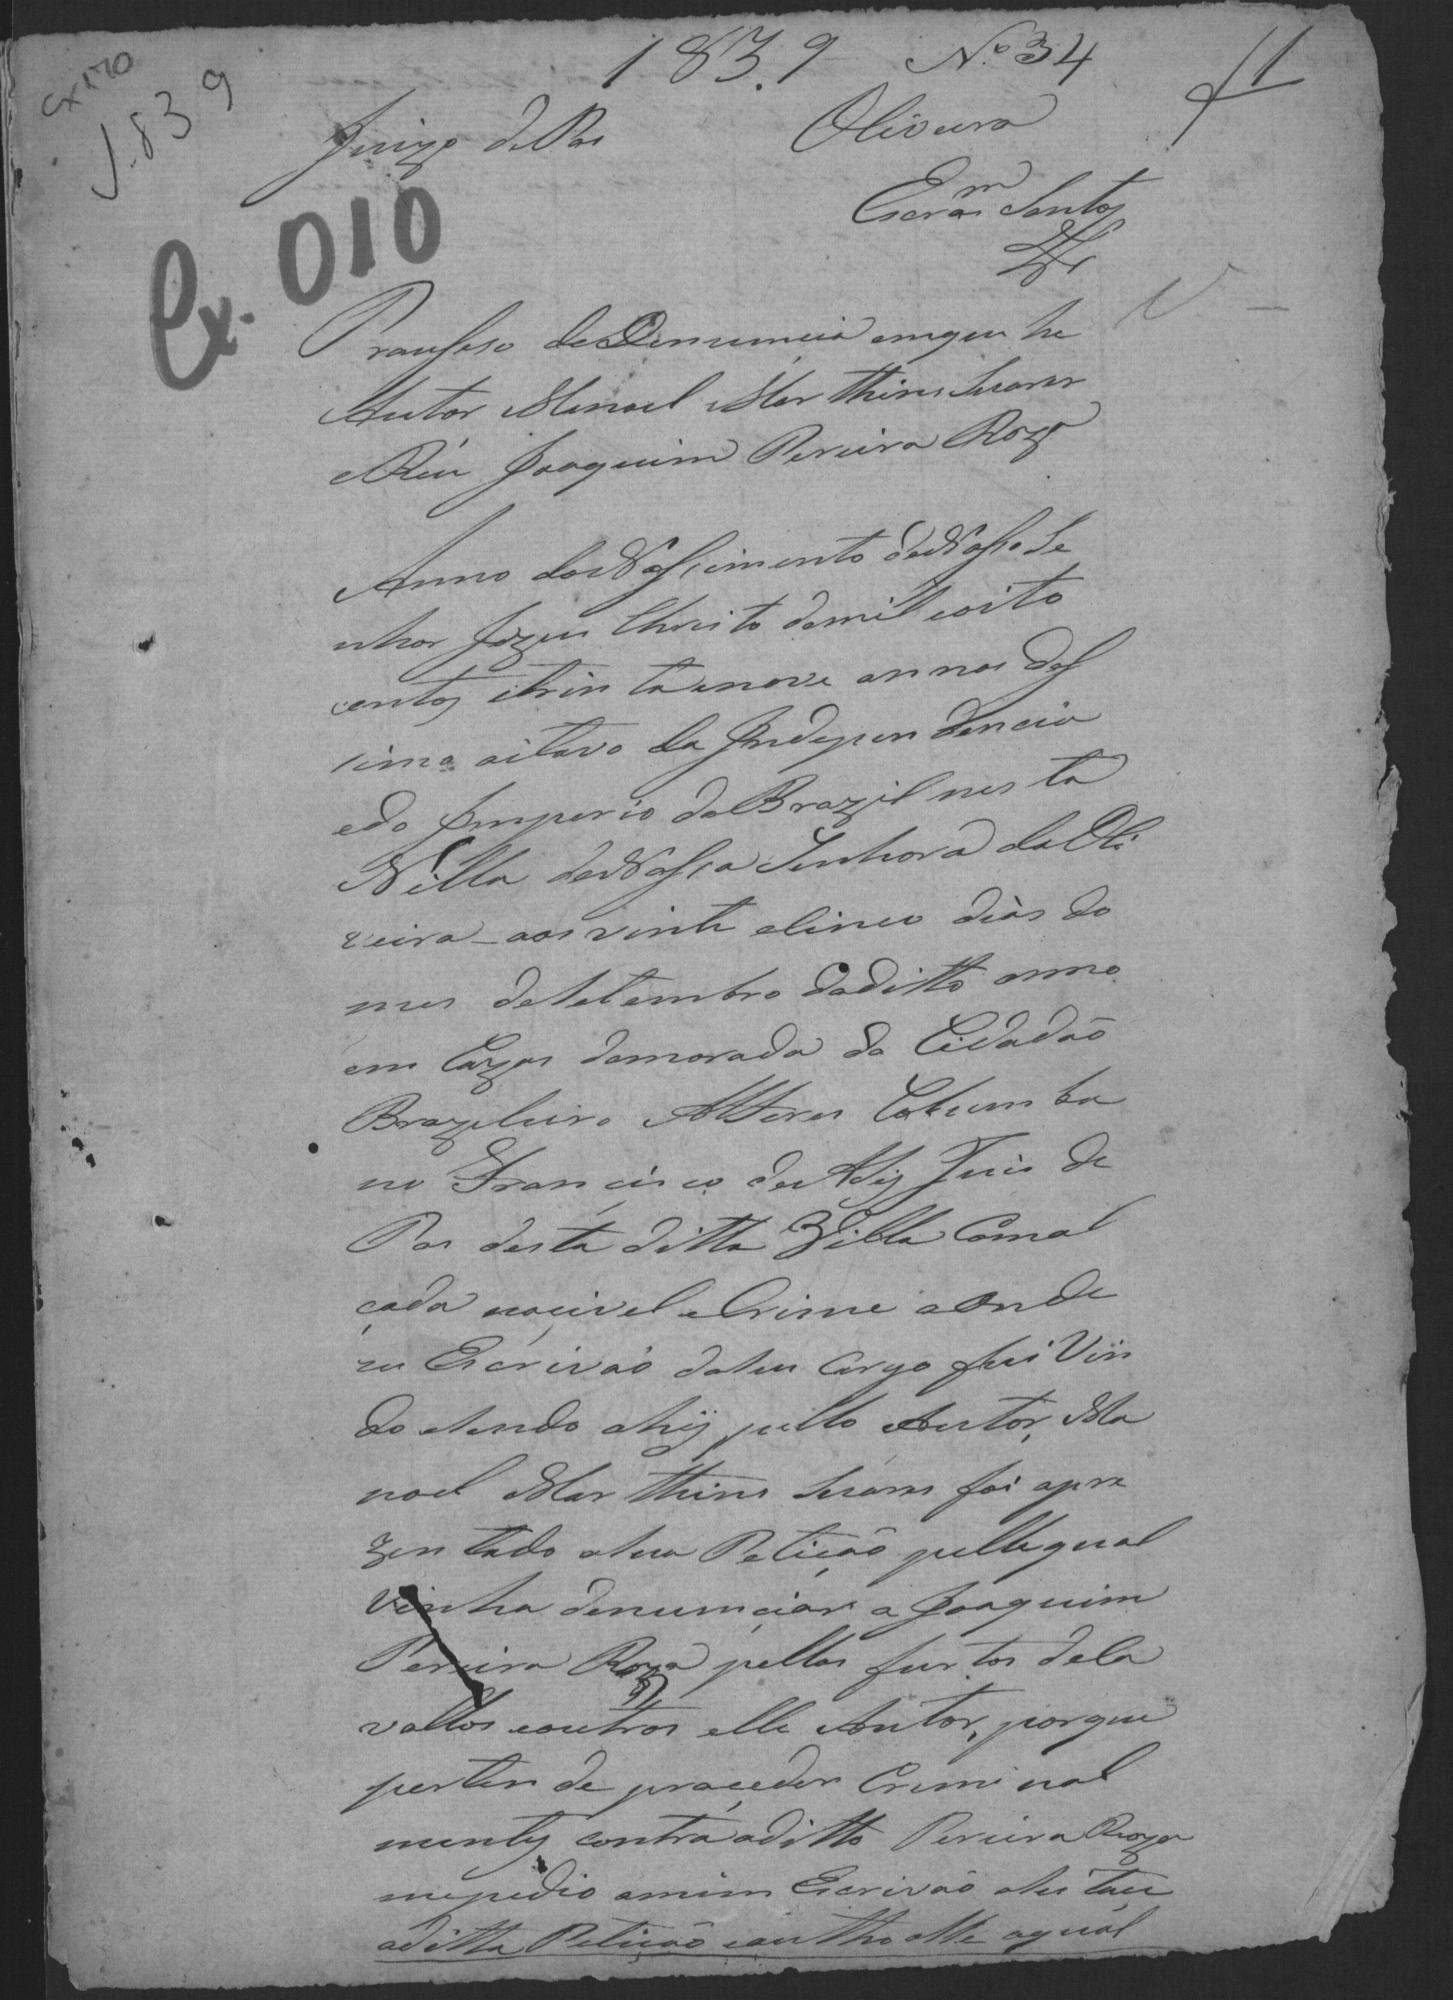 1839 Nº 34
f 1
Cx 170
1839
Juizo de Pas
Oliveira
Escram Santos
Cx. 010
Prauseso de Denuncia em que he
Autor Manoel Marthins Suares
e Réu Joaquim Pereira Roza
Anno do Nascimento de Nosso Se
nhor Jezus Christo de mil e oito
centos e trinta e nove annos des
simo oitavo da Independencia
e do Imperio do Brazil nesta
Villa de Nossa Senhora da Oli
veira aos vinte e sinco dias do
mes de Setembro do ditto anno
em Cazas de morada do Cidadão
Brazileiro Alferes Columba
no Francisco de Juis de
Pas desta ditta Villa
no civel e Crime a onde
eu Escrivão do seu Cargo fui Vin
do e sendo ahij pello Autor, Ma
noel Marthins Suares foi apre
zentado a sua Petição pella qual
vinha denunciar a Joaquim
Pereira Roza pellos furtos de Ca
vallos e outros elle Autor, porque
pertende proceder Criminal
mente contra a ditto Pereira Roza
me pedio a mim Escrivão
a ditta Petição a qual